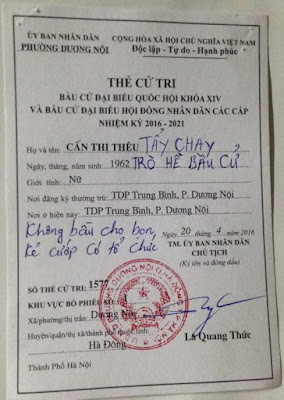 ỦY BAN NHÂN DÂN CỘNG HÒA XÃ HỘI CHỦ NGHĨA VIỆT NAM
PHƯỜNG DƯƠNG NỘI Độc lập - Tự do - Hạnh phúc
THẺ CỬ TRI
BẦU CỬ ĐẠI BIỂU QUỐC HỘI KHÓA XIV
VÀ BẦU CỬ ĐẠI BIỂU HỘI ĐỒNG NHÂN DÂN CÁC CẤP
NHIỆM KỲ 2016 - 2021
Họ và tên: CẤN THỊ THÊU TẨY CHAY
Ngày, tháng, năm sinh: 1962 TRÒ HỀ BẦU CỬ
Giới tính: Nữ
Nơi đăng ký thường trú: TDP Trung Bình, P. Dương Nội
Nơi ở hiện nay: TDP Trung Bình, P. Dương Nội
Không bầu cho bọn
kẻ cướp có tổ chức
Ngày 20 tháng 4 năm 2016
TM. ỦY BAN NHÂN DÂN
CHỦ TỊCH
(Ký tên và đóng dấu)
SỐ THẺ CỬ TRI: 1577
KHU VỰC BỎ PHIẾU SỐ:
Xã/phường/thị trấn: Dương Nội
Huyện/quận/thị xã/thành phố thuộc tỉnh:
Hà Đông
Lã Quang Thức
Thành Phố Hà Nội